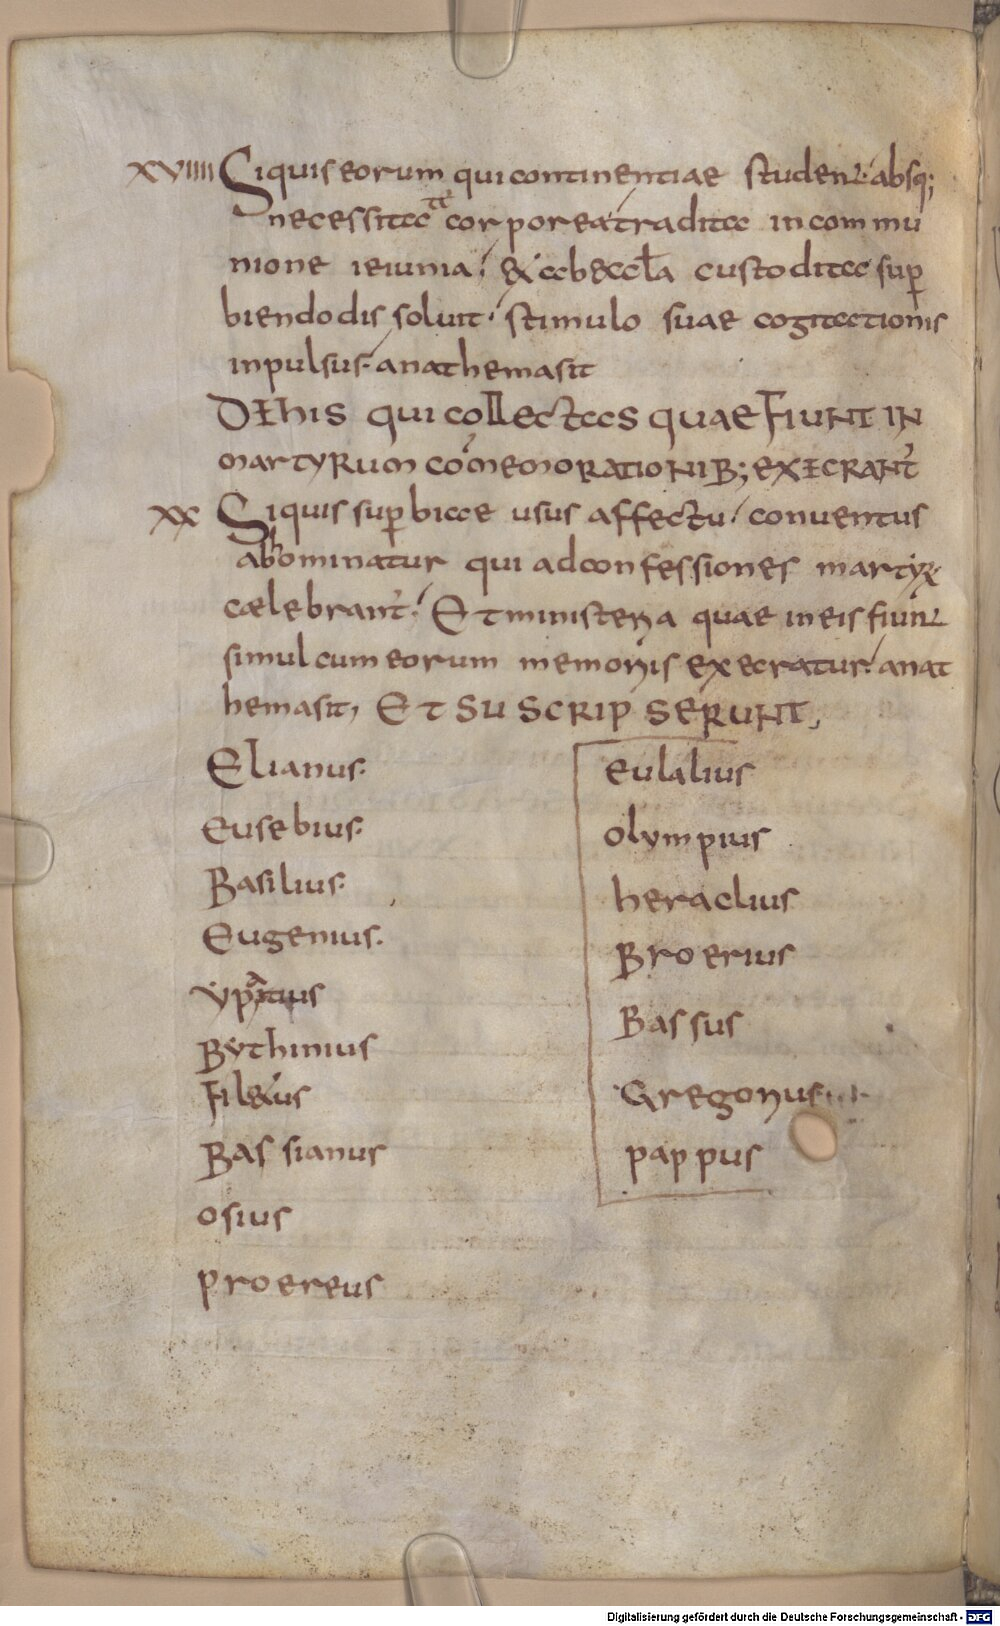 XVIIII Siquis eorum qui continentiae student absq;
necessitate corporea tradita in commu
nione ieiunia, et ab eccla custodita sup
biendo dissoluit, stimulo suae cogitationis
inpulsus anathema sit
DE his qui collectas quae fiunt in
martyrum comemorationib; execrant
XX Siquis superbiae usus affectu, conuentus
abominatur qui ad confessiones martyr
caelebrant, Et ministeria quae in eis fiunt
simul cum eorum memoriis execratur anat
hema sit, Et suscripserunt,
Elianus.
Eusebius.
Basilius.
Eugenius.
ypatius
Bythinius
Filetus
Bassianus
osius
proereus
eulalius
olympius
heraclius
Broerius
Bassus
Gregorius
pappus
Digitalisierung gefördert durch die Deutsche Forschungsgemeinschaft - DFG